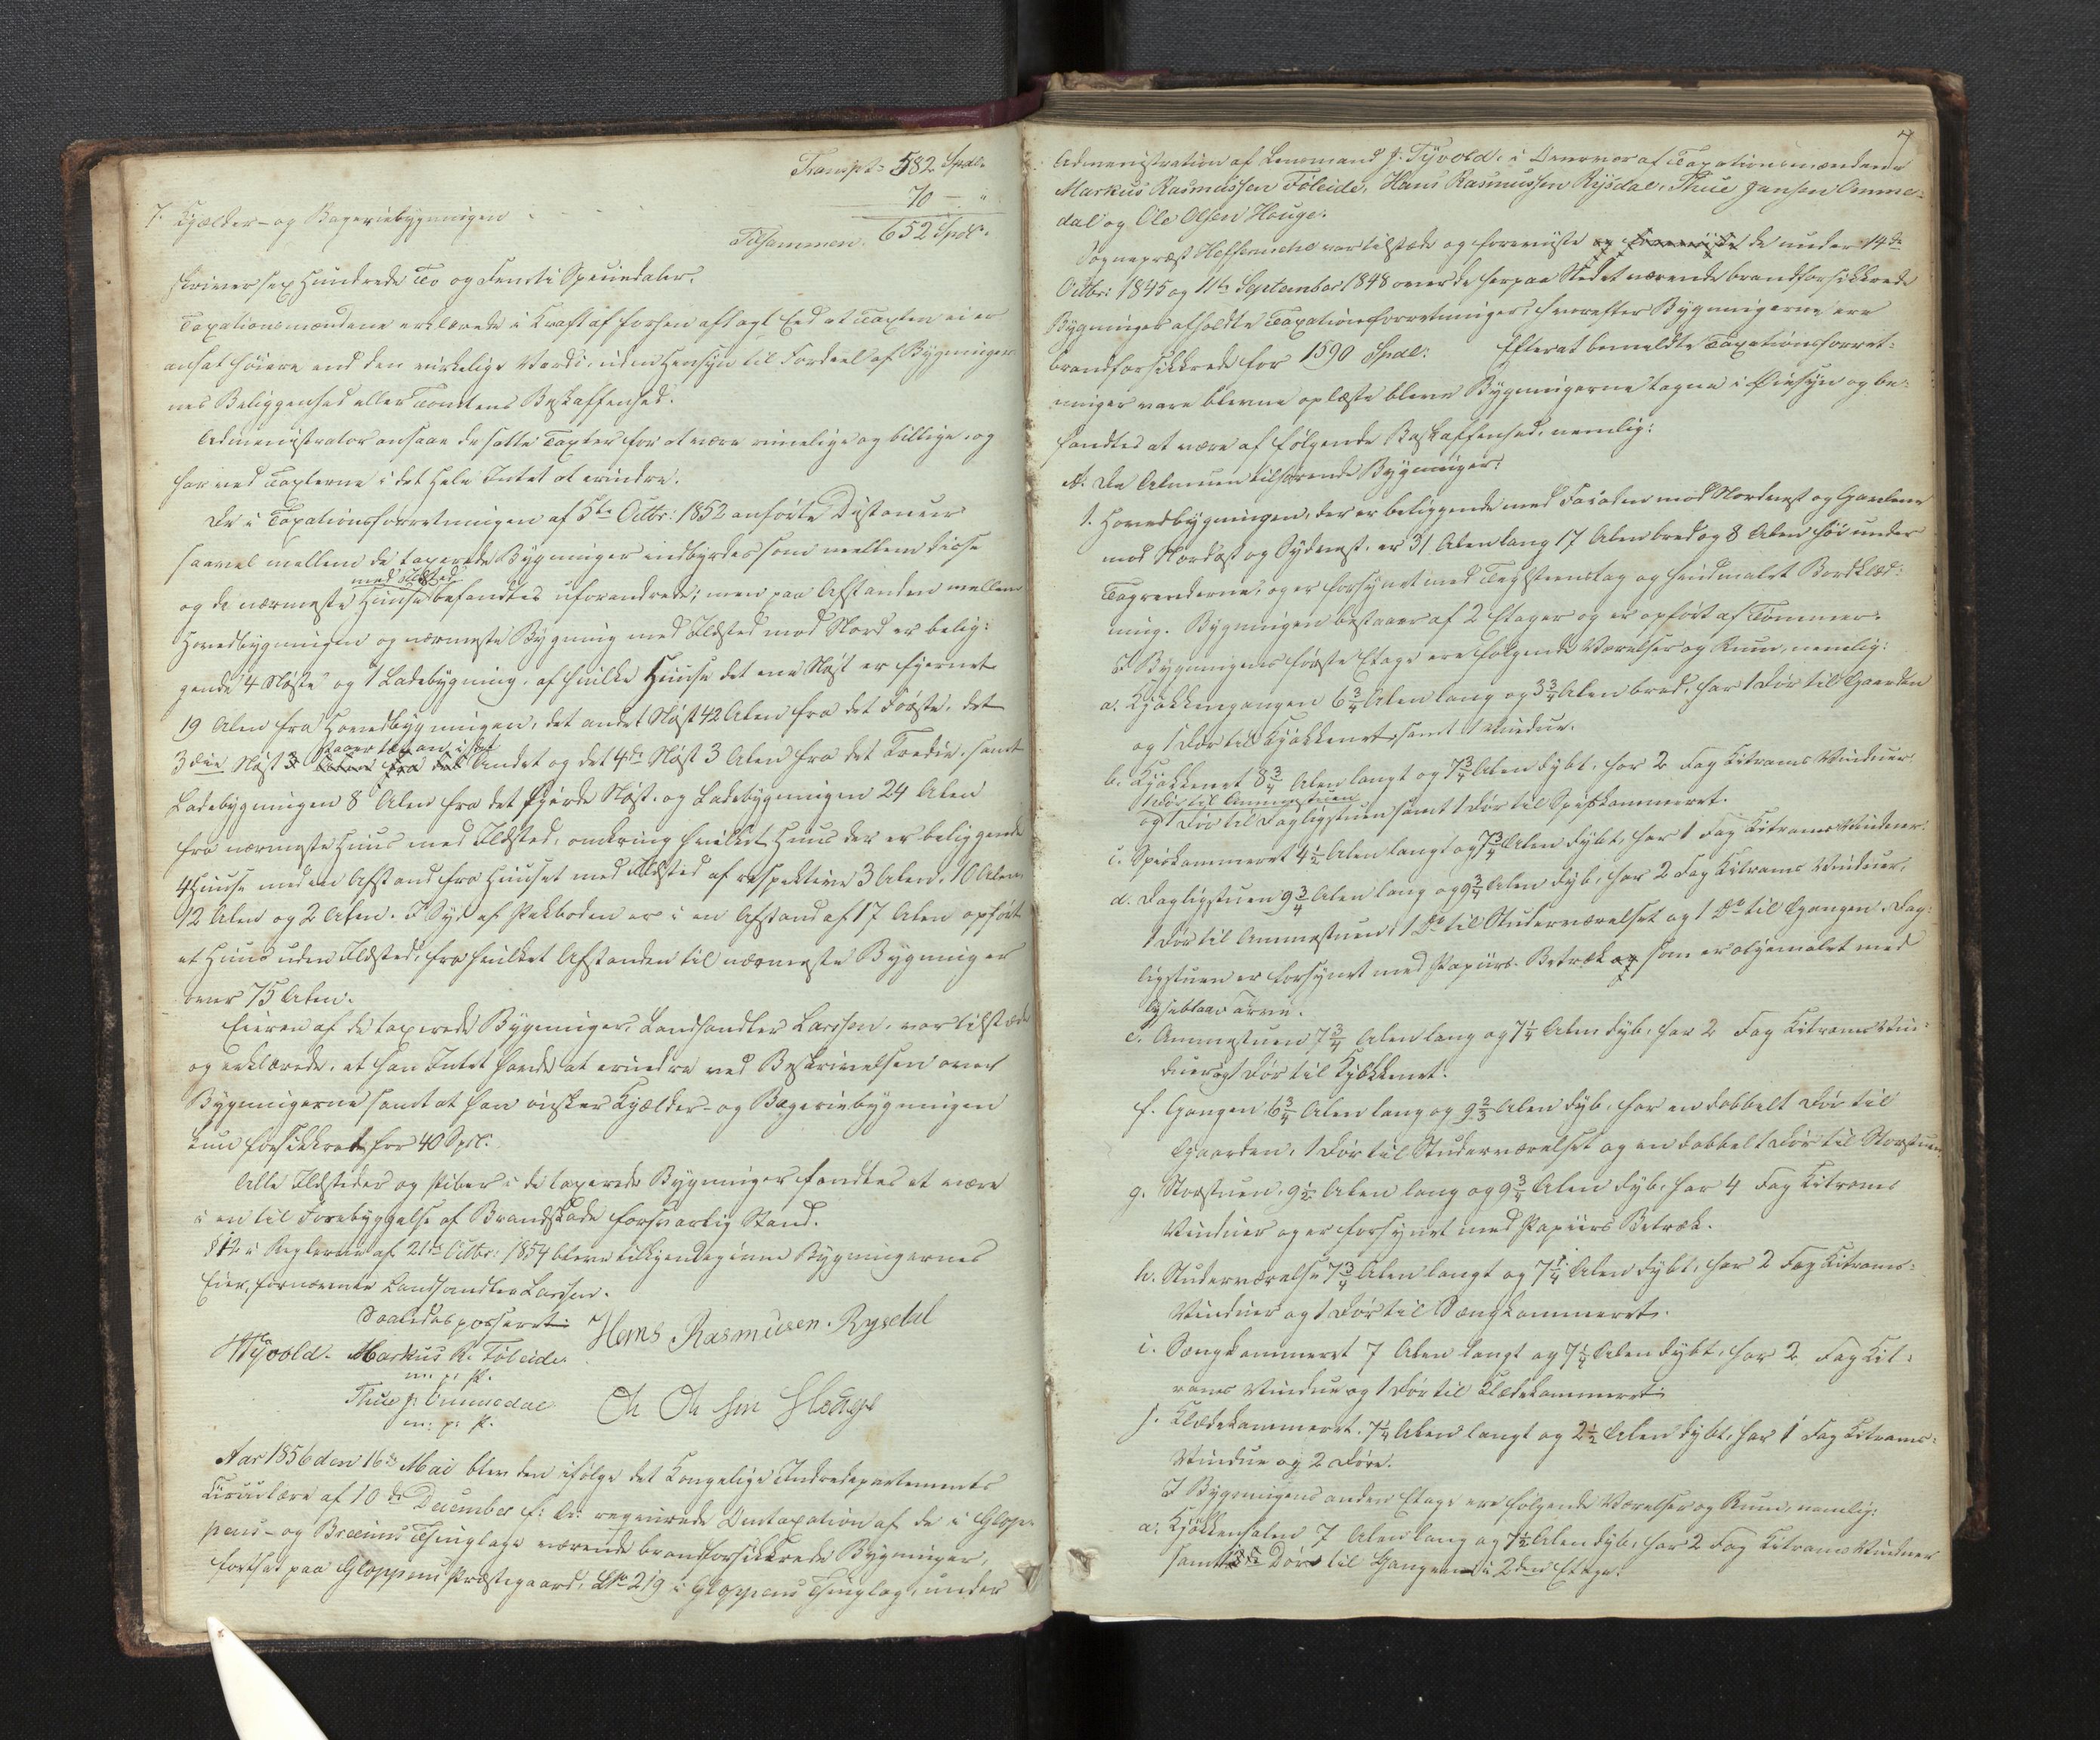 Transpt: 582 Spdl.
7. Kjælder- og Bageriebygningen 70 — "
Tilsammen. 652 Spdl.
skriver sex Hundrede To og Femti Speciedaler.
Taxationsmændene erklærede i Kraft af forhen aflagt Eed at Taxten ei er
ansat høiere end den virkelige Værdi, uden Hensyn til Fordeel af Bygninger
nes Beliggenhed eller Tomtens Beskaffenhed.
Administrator ansaae de satte Taxter for at være rimelige og billige, og
har ved Taxterne i det Hele Intet at erindre.
De i Taxationsforretningen af 5te Octbr: 1852 anførte Distancer
saavel mellem de taxerede Bygninger indbyrdes som mellem disse
med Ildsted
og de nærmeste Huuse befandtes uforandrede; men paa Afstanden mellem
Hovedbygningen og nærmeste Bygning med Ildsted mod Nord er belig-
gende 4 Nøste og 1 Ladebygning, af hvilke Huuse det ene Nøst er fjernet
19 Alen fra Hovedbygningen, det andet Nøst 42 Alen fra det Første, det
3die Nøst 3 Alen fra det Andet og det 4de Nøst 3 Alen fra det Tredie, samt
Ladebygningen 8 Alen fra det fjerde Nøst, og Ladebygningen 24 Alen
fra nærmeste Huus med Ildsted, omkring hvilket Huus der er beliggende
4 Huuse med en Afstand fra Huuset med Ildsted af respektive 3 Alen, 10 Alen,
12 Alen og 2 Alen. I Syd af Pakboden er i en Afstand af 17 Alen opført
et Huus uden Ildsted, fra hvilket Afstanden til nærmeste Bygning er
over 75 Alen.
Eieren af de taxerede Bygninger, Landhandler Larsen, var tilstæde
og erklærede, at han Intet havde at erindre ved Beskrivelsen over
Bygningerne samt at han ønsker Kjælder- og Bageriebygningen
kun forsikkret for 40 Spd.
Alle Ildstæder og Piber i de taxerede Bygninger fandtes at være
i en til Forebyggelse af Brandskade forsvarlig Stand.
§ 12 i Reglerne af 21de Octbr: 1854 bleve tilkjendegivne Bygningernes
Eier, fornævnte Landhandler Larsen.
Saaledes passeret.
Tyvold. Markus R. Føleide. Hans Rasmusen Rysdal
m. p. P.
Thue J: Ommedal Ole Olsen Houge
m. p. P.
Aar 1856 den 16de Mai blev den ifølge det Kongelige Indredepartements
Circulære af 10de December f: A: reqvirede Omtaxation af de i Glop-
pens- og Breims Thinglage værende brandforsikkrede Bygninger,
fortsat paa Gloppens Præstegaard, LNo 219 i Gloppens Thinglag, under
7
Administration af Lensmand J. Tyvold, i Overvær af Taxationsmændene
Markus Rasmussen Føleide, Hans Rasmussen Rysdal, Thue Jansen Omme-
dal og Ole Olsen Houge.
Sognepræst Heffermehl var tilstæde og foreviiste og foreviiste de under 14de
Octbr: 1845 og 11te September 1848 over de herpaa Stedet værende brandforsikkrede
Bygninger afholdte Taxationsforretninger, hvorefter Bygningerne ere
brandforsikkrede for 1590 Spdl. Efterat bemeldte Taxationsforret-
ninger vare blevne oplæste bleve Bygningerne tagne i Øiesyn og be-
fandtes at være af følgende Beskaffenhed, nemlig:
A. De Almuen tilhørende Bygninger:
1. Hovedbygningen, der er beliggende med Facaden mod Nordvest og Gavlene
mod Nordost og Sydvest, er 31 Alen lang 17 Alen bred og 8 Alen høi under
Tagrenderne, og er forsynet med Teglsteenstag og hvidmalet Bordklæd-
ning. Bygningen bestaaer af 2 Etager og er opført af Tømmer.
I Bygningens første Etage ere følgende Værelser og Rum, nemlig:
a. Kjøkkengangen 6 3/4 Alen lang og 3 3/4 Alen bred, har 1 Dør til Gaarden
og 1 Dør til Kjøkkenet, samt 1 Vindue.
b. Kjøkkenet 8 3/4 Alen langt og 7 3/4 Alen dybt, har 2 Fag Kitrams Vinduer,
1 Dør til Ammestuen
og 1 Dør til Dagligstuen samt 1 Dør til Spiskammeret.
c. Spiskammeret 4 1/2 Alen langt og 7 3/4 Alen dybt, har 1 Fag Kitrams Vinduer.
d. Dagligstuen 9 3/4 Alen lang og 9 3/4 Alen dyb, har 2 Fag Kitrams Vinduer,
1 Dør til Ammestuen, 1 Do til Studerværelset og 1 Do til Gangen. Dag-
ligstuen er forsynet med Papiirs-Betræk og som er oliemalet med
lyseblaa Farve.
e. Ammestuen 7 3/4 Alen lang og 7 1/4 Alen dyb, har 2 Fag Kitrams Vin-
duer og 1 Dør til Kjøkkenet.
f. Gangen 6 3/4 Alen lang og 9 2/3 Alen dyb, har en dobbelt Dør til
Gaarden, 1 Dør til Studerværelset og en dobbelt Dør til Storstuen.
g. Storstuen, 9 1/2 Alen lang og 9 3/4 Alen dyb, har 4 Fag Kitrams
Vinduer og er forsynet med Papiirs Betræk.
h. Studerværelse 7 3/4 Alen langt og 7 1/4 Alen dybt, har 2 Fag Kitrams-
Vinduer og 1 Dør til Sengkammeret.
i. Sengkammeret 7 Alen langt og 7 1/4 Alen dybt, har 2 Fag Kit-
rams Vindue og 1 Dør til Klædekammeret.
j. Klædekammeret, 7 1/4 Alen langt og 2 1/2 Alen dybt, har 1 Fag Kitrams-
Vindue og 2 Døre.
I Bygningens anden Etage ere følgende Værelser og Rum, nemlig:
a. Kjøkkensalen 7 Alen lang og 7 1/2 Alen dyb, har 2 Fag Kitrams Vinduer
samt Dør til Gangen i 2den Etage.